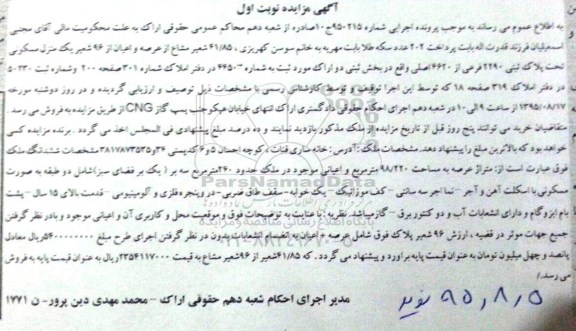 آگهی مزایده نوبت اول
به اطلاع عموم می رساند به موجب پرونده اجرایی شماره ۹۵۰۲۱۵ج۱۰صادره از شعبه دهم محاکم عمومی حقوقی اراک به علت محکومیت مالی آقای مجتبی
اسمعیلیان فرزند قدرت اله بابت پرداخت ۲۰۲ عدد سکه طلا بابت مهریه به خانم سوسن کهریزی ، ۴۱/۸۵ شعیر مشاع از عرصه و اعیان از ۹۶ شعیر یک منزل مسکونی
تحت پلاک ثبتی ۲۲۹۰ فرعی از ۴۶۲۰اصلی واقع در بخش ثبتی دو اراک مورد ثبت به شماره ۴۴۵۰۳ در دفتر املاک شماره ۳۰۱ صفحه ۲۰۰ و شماره ثبت ۵۰۲۳۰
در دفتر املاک ۳۱۹ صفحه ۱۸ که توسط این اجرا توقیف و توسط کارشناس رسمی با مشخصات ذیل توصیف و ارزیابی گردیده و در روز دوشنبه مورخه
۱۳۹۵/۰۸/۱۷ از ساعت ۹ الی ۱۰ در شعبه دهم اجرای احکام حقوقی دادگستری اراک انتهای خیابان هپکو جنب پمپ گاز CNG از طریق مزایده به فروش می رسد .
متقاضیان خرید می توانند پنج روز قبل از تاریخ مزایده از ملک مذکور بازدید نمایند و ده درصد مبلغ پیشنهادی فی المجلس اخذ می گردد . برنده مزایده کسی
خواهد بود که بالاترین مبلغ را پیشنهاد دهند. مشخصات ملک : آدرس : خانه سازی قنات ، کوچه احسان ۵و۶ کدپستی ۳۸۱۷۸۷۳۵۳۵و۳۶ مشخصات ششدانگ ملک
فوق عبارت است از: متراژ عرصه به مساحت ۹۸/۲۲۰ مترمربع و اعیانی موجود در ملک حدود ۲۶۰مترمربع سه بر ( یک بر فضای سبز)شامل دو طبقه به صورت
مسکونی با اسکلت آهن و آجر – نما آجر سه سانتی – کف موزائیک – یک حوله – سقف طاق ضربی – پنجره فلزی و آلومینیومی – قدمت بالای ۱۵ سال – پشت
بام ایزوگام و دارای انشعابات آب و دو کنتور برق – گاز میباشد. نظریه : با عنایت به توضیحات فوق و موقعیت محل و کاربری آن و اعیانی موجود و بادر نظر گرفتن
جمیع جهات موثر در قضیه ، ارزش ۹۶ شعیر پلاک فوق شامل عرصه و اعیان به انضمام انشعابات بدون در نظر گرفتن اجرای طرح مبلغ ۵۴۰۰۰۰۰۰۰۰ریال معادل
پانصد و چهل میلیون تومان به عنوان قیمت پایه برآورد و پیشنهاد می گردد . که ۴۱/۸۵شعیر از ۹۶شعیر مشاع به قیمت ۲۳۵۴۱۱۷۰۰۰ریال به عنوان قیمت پایه به فروش
می رسد./
مدیر اجرای احکام شعبه دهم حقوقی اراک – محمد مهدی دین پرور- ن ۱۷۷۱
۹۵,۸,۵
ParsNamadData
۰۲۱-۸۸۳۴۹۶۷۰-۵